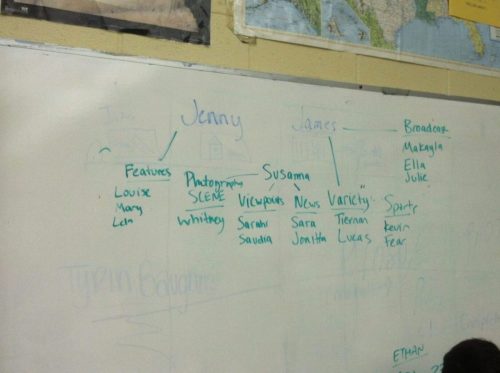 Jenny
James
Broadcast
Makayla
Ella
Julie
Features
Louise
Mary
Lela
Susanna
Photography
SCENE
Whitney
Viewpoints
Sarahi
Saudia
News
Sara
Jonitha
Variety
Tiernan
Lucas
Sports
Kevin
Fear
ETHAN